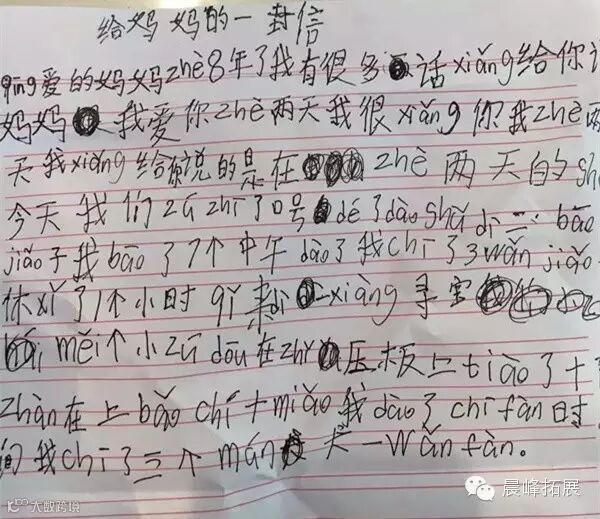 给妈妈的一封信
qīng爱的妈妈zhè8年了我有很多话xiǎng给你
妈妈我爱你zhè两天我很xiǎng你我zhè两
天我xiǎng给你说的是在zhè两天的sh
今天我们zǔ zhī了口号dé了dào shǔ dì二bāo
jiǎo子我bāo了7个中午dào了我chī了3wǎn jiǎo
休xī了1个小时qǐ来dì二xiàng寻宝
měi个小zǔ dōu在zhǐ压板上tiào了十
zhàn在上bǎo chí十miǎo我dào了chī fàn时
们我chī了三个mán大一wǎn fàn。
大数跨境
晨峰拓展